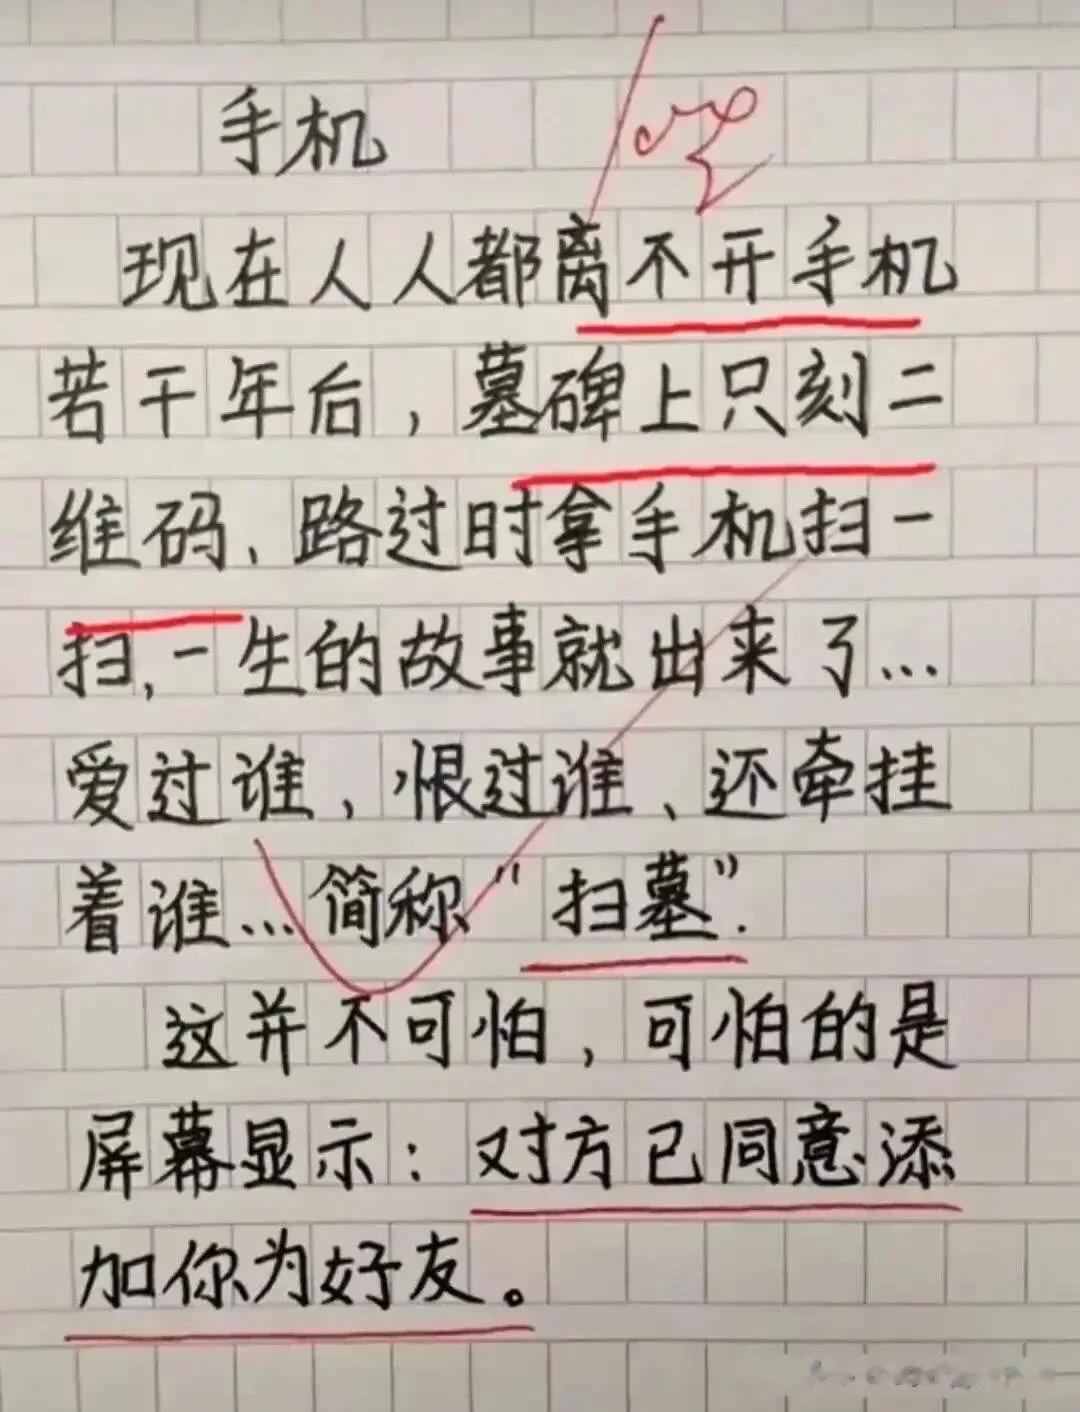 手机
现在人人都离不开手机
若干年后，墓碑上只刻二
维码、路过时拿手机扫一
扫，一生的故事就出来了…
爱过谁，恨过谁、还牵挂
着谁…简称“扫墓”.
这并不可怕，可怕的是
屏幕显示：对方已同意添
加你为好友。